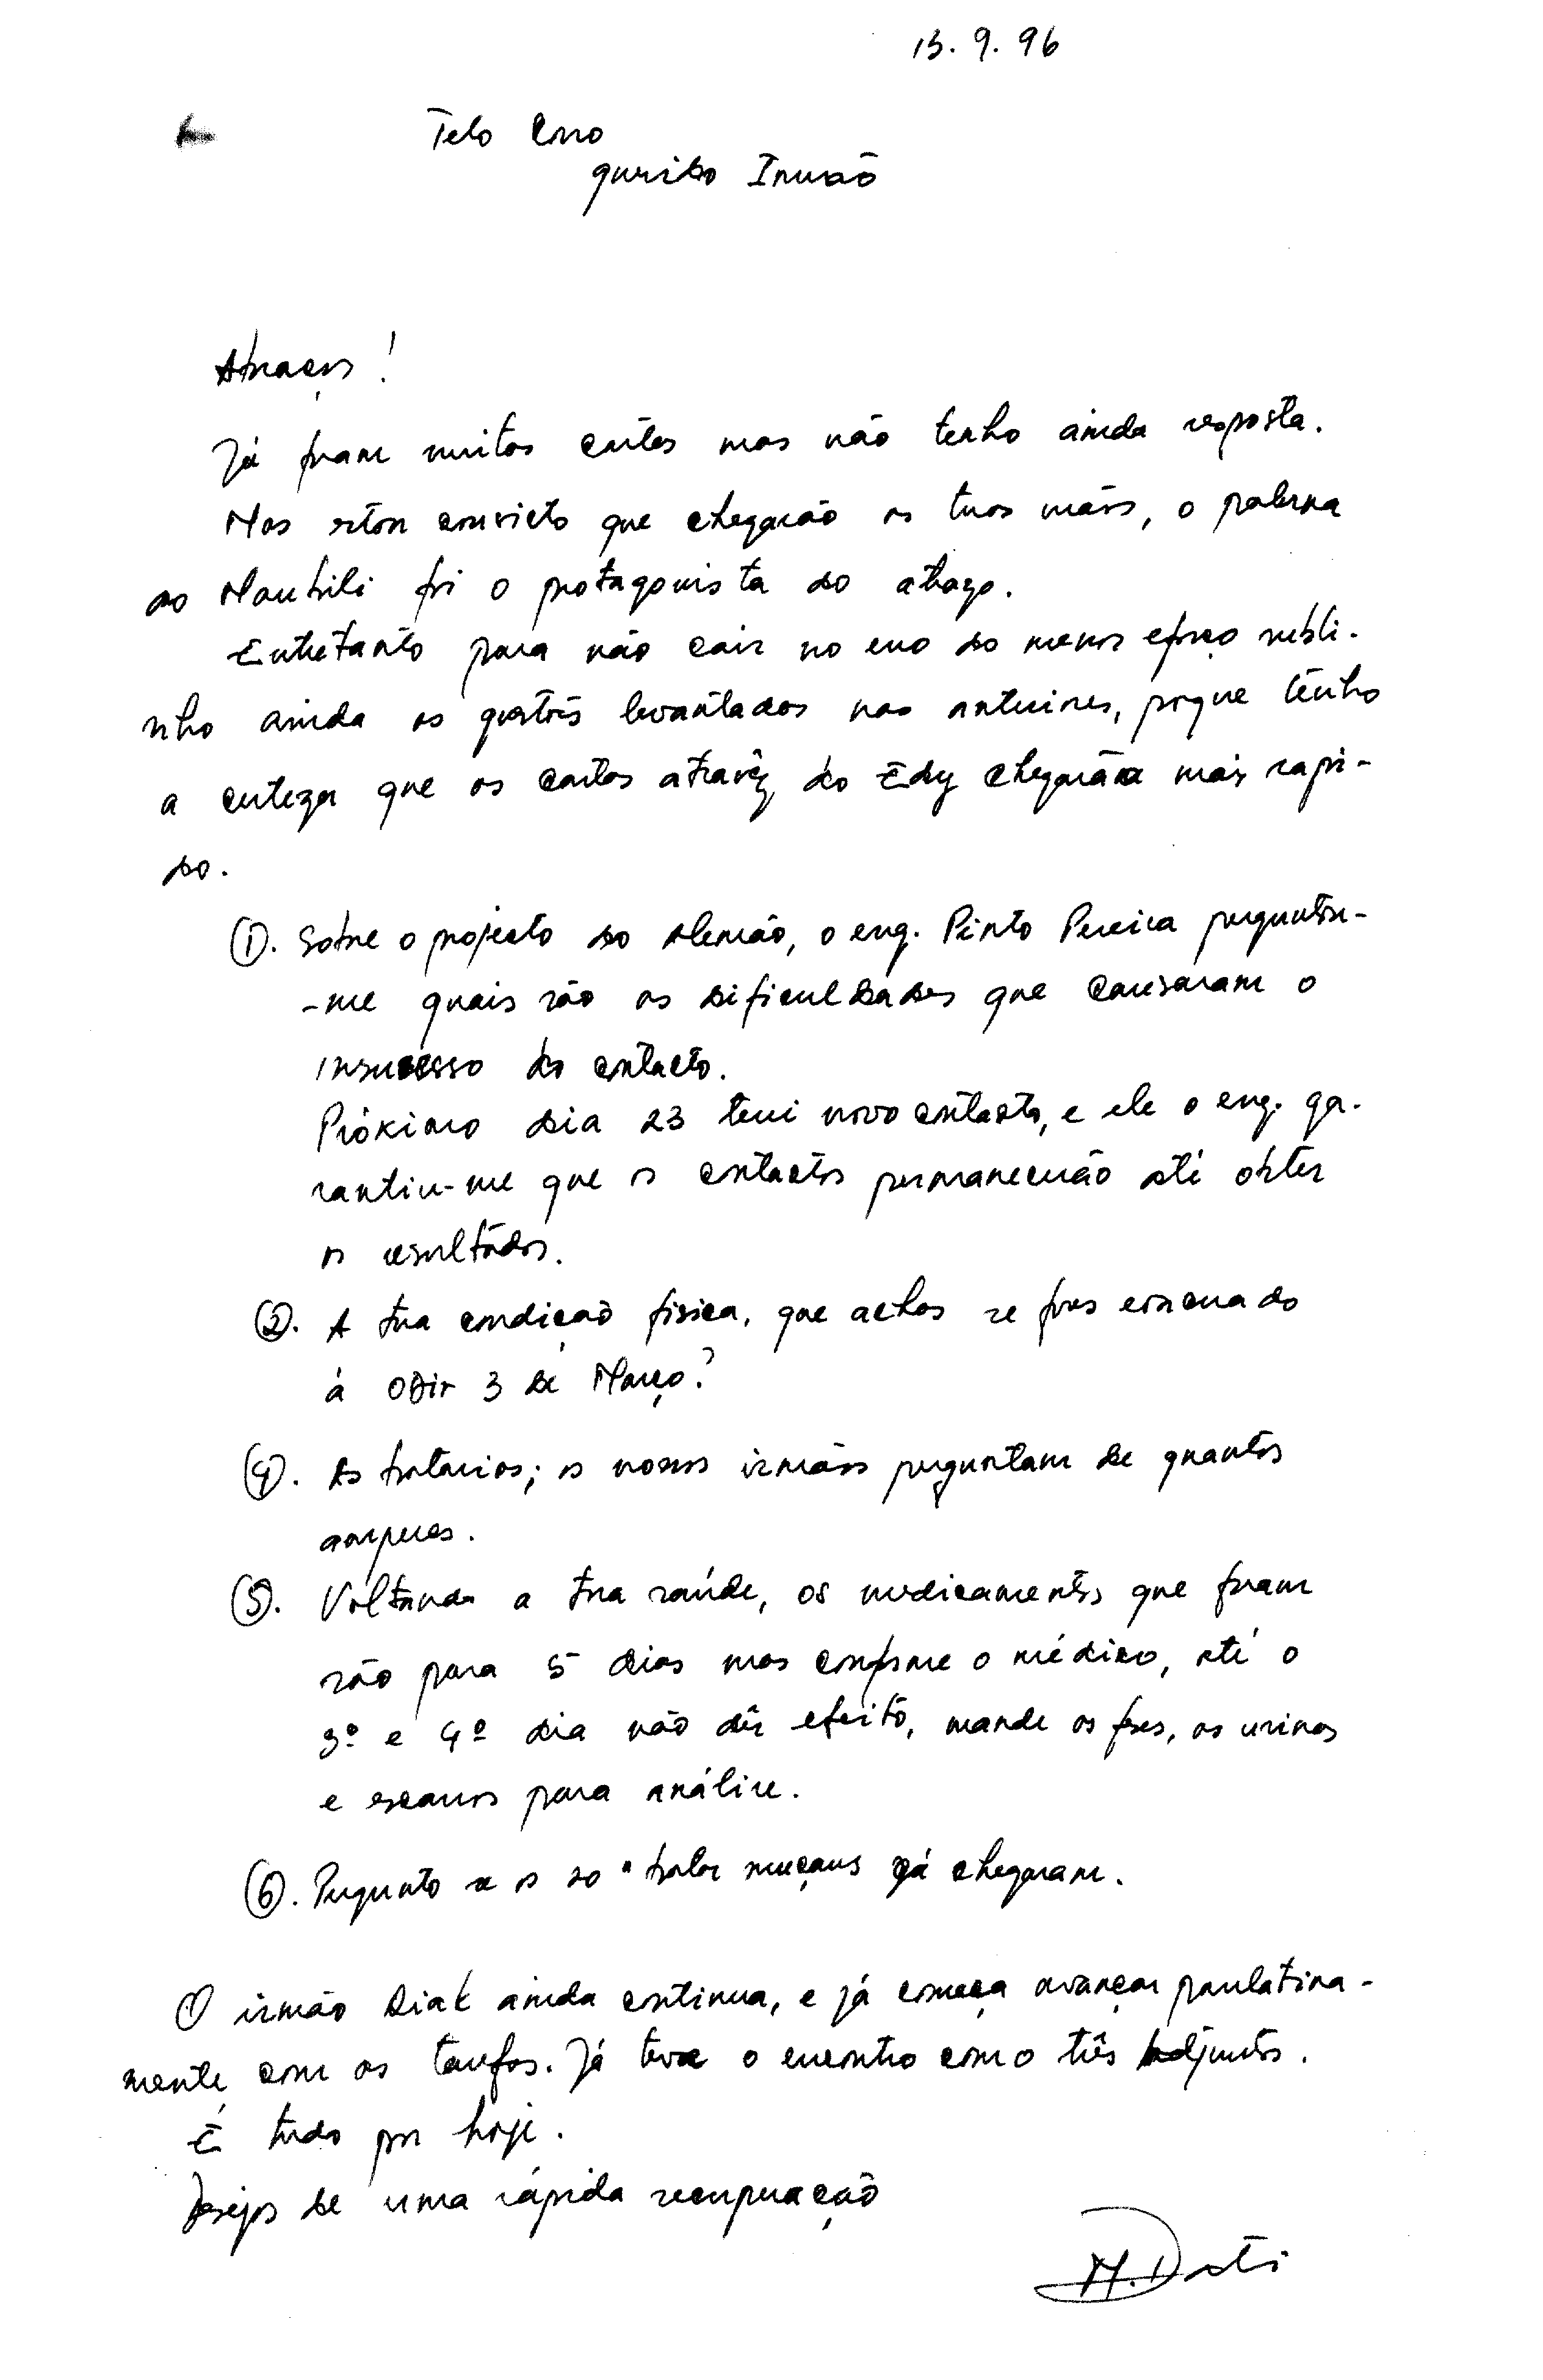 13.9.96
Telo Caro
querido Irmão
Abraços!
Já foram muitas cartas mas não tenho ainda resposta.
Mas estou convicto que chegarão as tuas mãos, o
ao Mauhili foi o protagonista do atrazo.
Entretanto para não cair no erro do menor esforço subli-
nho ainda as questões levantadas nas anteriores, porque tenho
a certeza que as cartas através do Edy chegarão mais rapi-
do.
(1). Sobre o projecto do Alemão, o eng. Pinto Pereira perguntou-
-me quais são as dificuldades que causaram o
insucesso do contacto.
Próximo dia 23 terei novo contacto, e ele o eng. ga-
rantiu-me que os contactos permanecerão até obter
os resultados.
(2). A tua condição fisica, que achas se fores
à Odir 3 de Março?
(4). As baterias; os nossos irmãos perguntam de quantos
amperes.
(5). Voltando a tua saúde, os medicamentos que foram
são para 5 dias mas conforme o médico, até o
3º e 4º dia não dêr efeito, mande as fezes, as urinas
e escarros para análise.
(6). Pergunto se os já chegaram.
O irmão Diak ainda continua, e já começa avançar paulatina-
mente com as tarefas. Já teve o encontro com o três Adjuntos.
É tudo por hoje.
Desejos de uma rápida recuperação
M. Dati